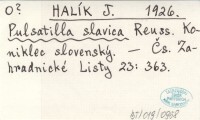 O? HALÍK J. 1926.
Pulsatilla slavica Reuss. Ko-
niklec slovenský. — Čs. Za-
hradnické Listy 23: 363.